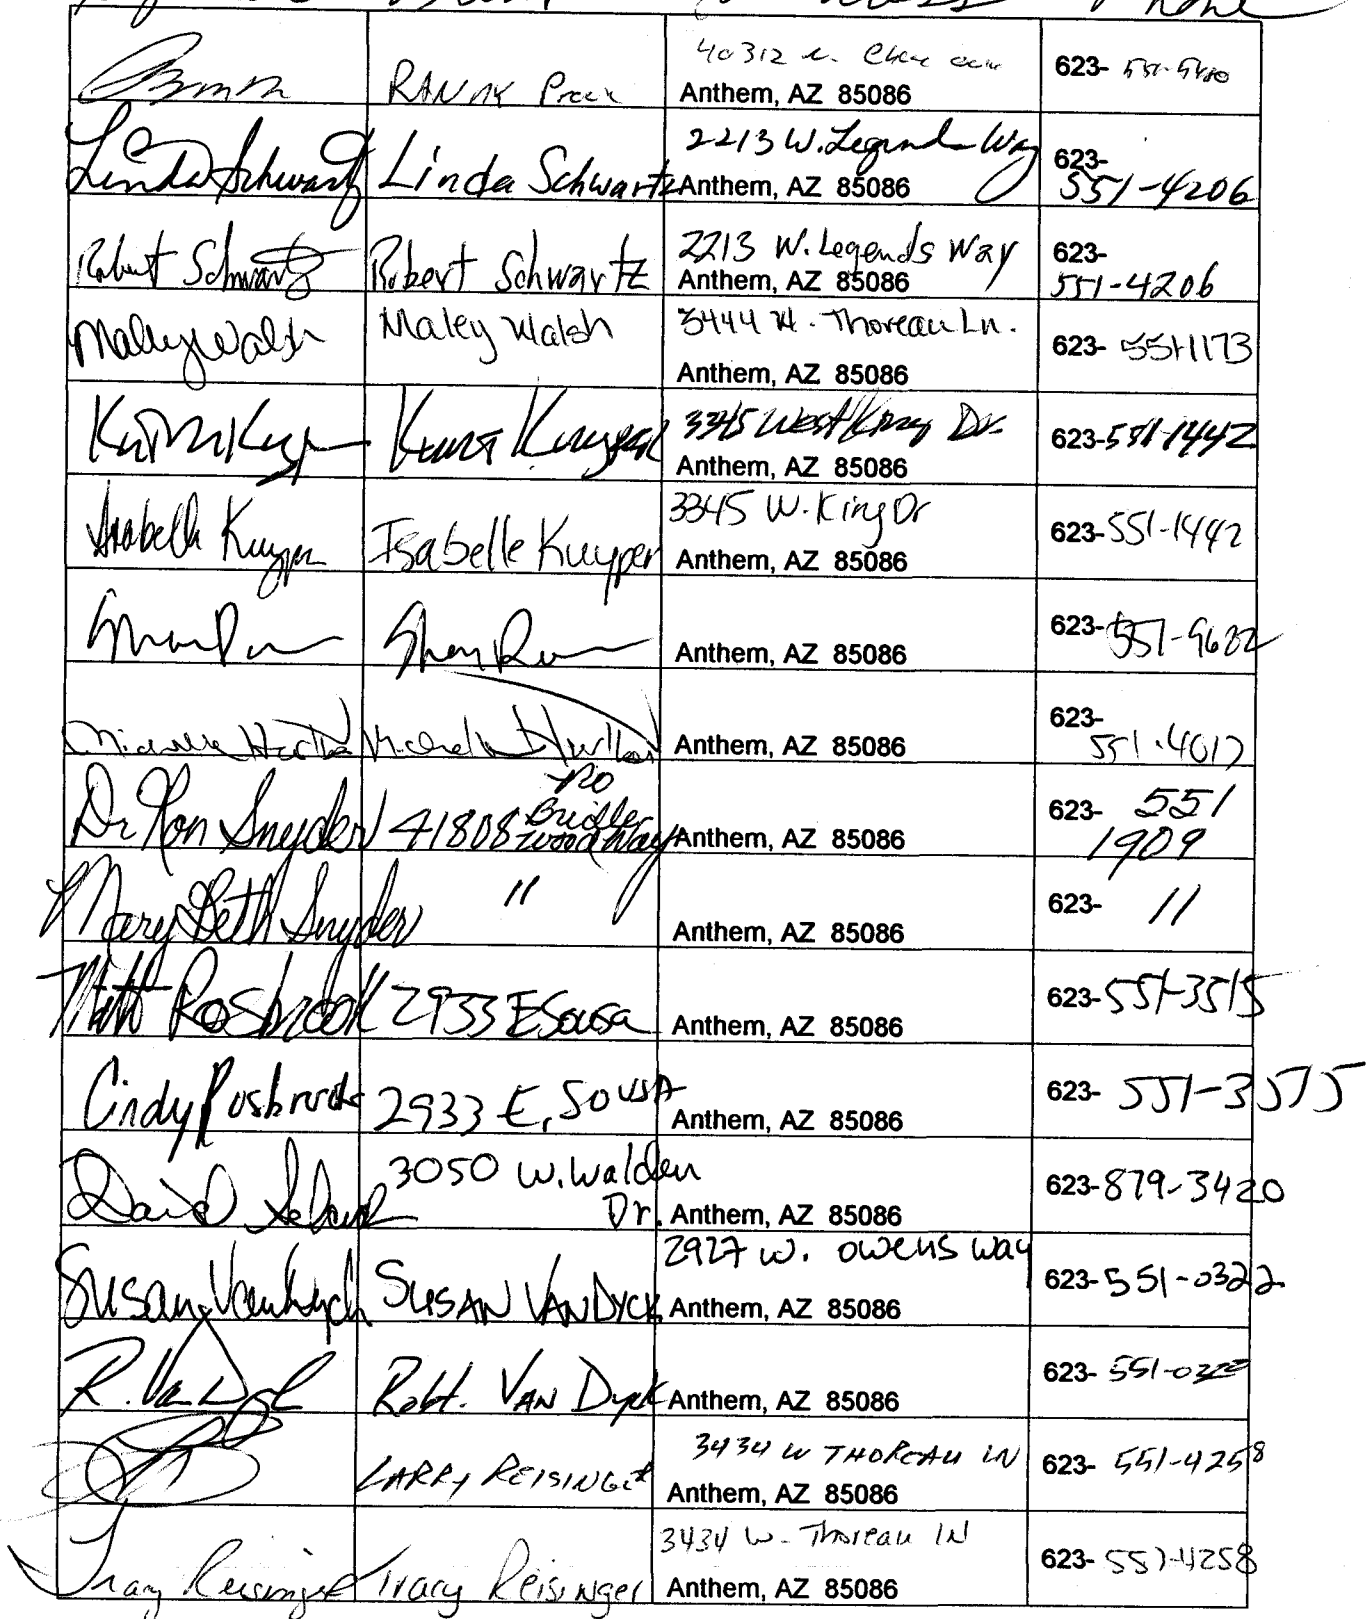 Phone
40312 n.
RANDY
Anthem, AZ 85086
623- 551-5480
Linda Schwartz Linda Schwartz
2213 W. Legends Way
Anthem, AZ 85086
623-
551-4206
Robert Schwartz Robert Schwartz
2213 W. Legends Way
Anthem, AZ 85086
623-
551-4206
Maley Walsh Maley Walsh
3444 W. Thoreau Ln.
Anthem, AZ 85086
623- 551-1173
Kurt Kuyper
3345 West King Dr.
Anthem, AZ 85086
623-551-1442
Isabelle Kuyper Isabelle Kuyper
3345 W. King Dr
Anthem, AZ 85086
623-551-1442
Anthem, AZ 85086
623-551-9622
Michelle
Anthem, AZ 85086
623-
551-4017
Dr Ron Snyder 41808 no
Bridle
wood Way
Anthem, AZ 85086
623- 551
1909
Mary Beth Snyder "
Anthem, AZ 85086
623- "
Matt Rosbrook 2933 E Sousa
Anthem, AZ 85086
623-551-3515
Cindy Rosbrook 2933 E. Sousa
Anthem, AZ 85086
623- 551-3515
David
3050 W. Walden
Dr.
Anthem, AZ 85086
623-879-3420
Susan VanDyck SUSAN VANDYCK
2927 W. Owens Way
Anthem, AZ 85086
623-551-0322
R. Van Dyck Robt. VAN Dyck
Anthem, AZ 85086
623- 551-0322
LARRY REISINGER
3434 W THOREAU LN
Anthem, AZ 85086
623- 551-4258
Tracy Reisinger Tracy Reisinger
3434 W. Thoreau LN
Anthem, AZ 85086
623- 551-4258